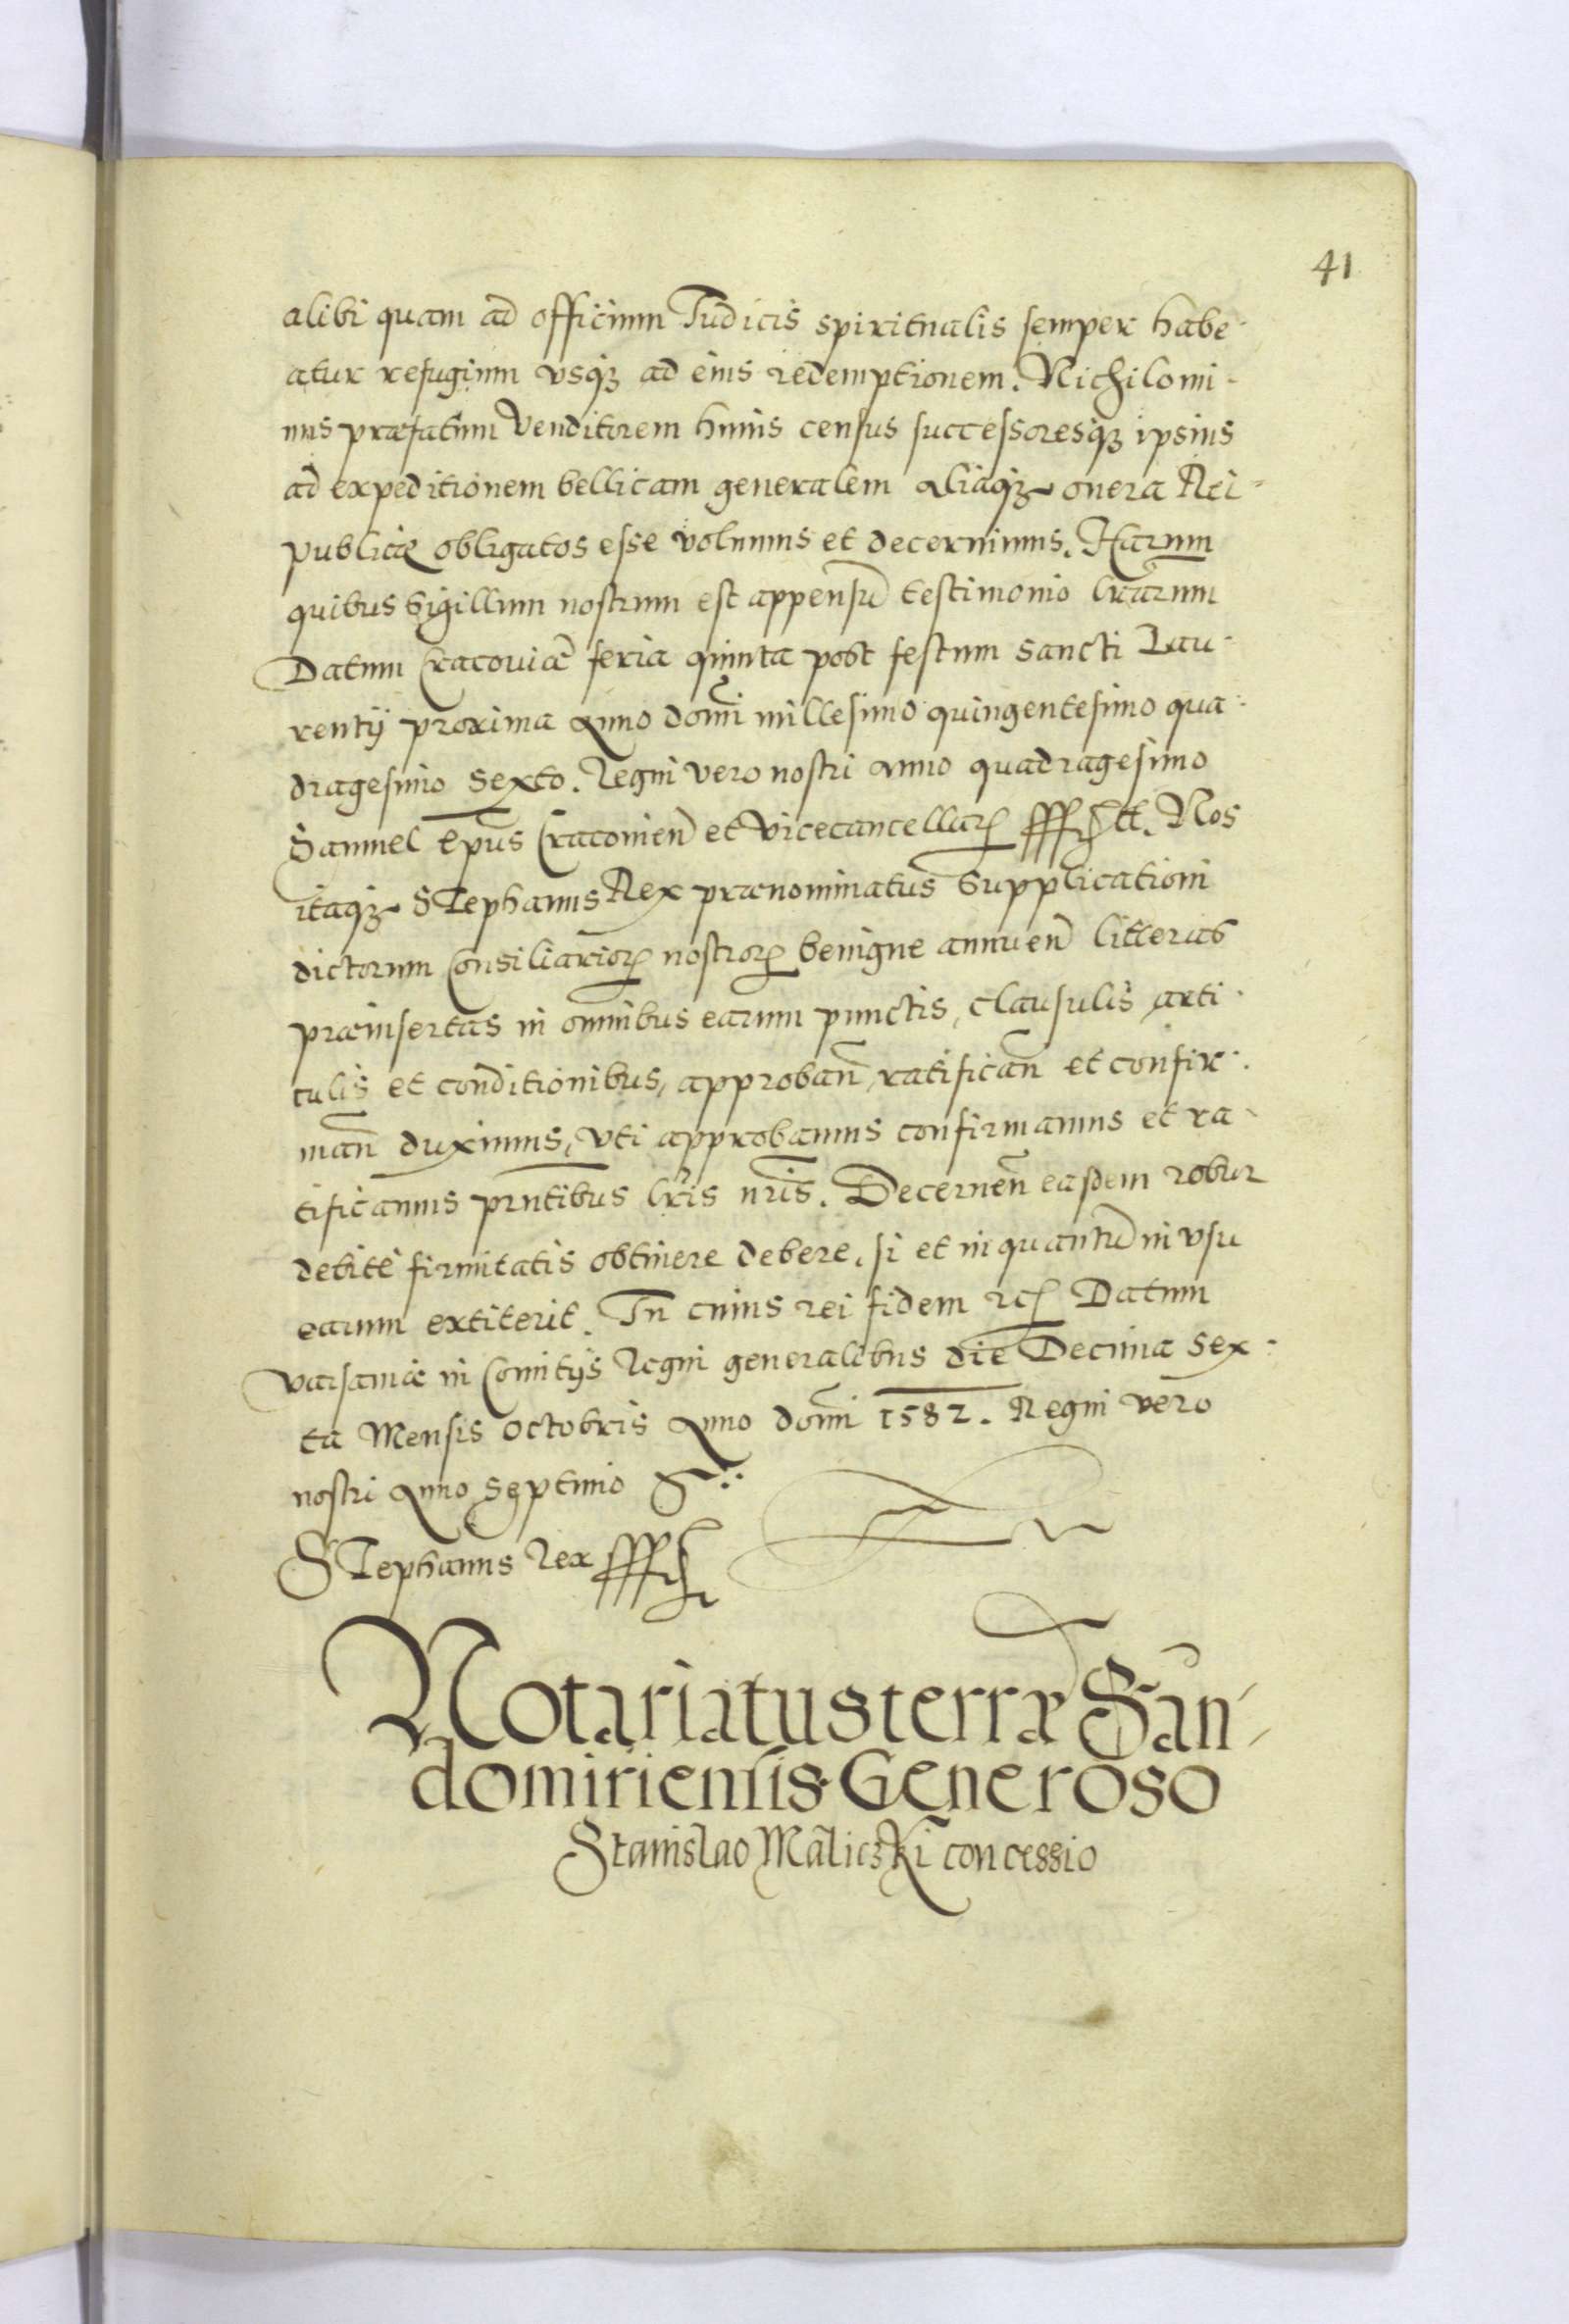 41
alibi quam ad officium Iudicis spiritualis semper habe-
atur refugium vsq3 ad eius redemptionem. Nichilomi-
nus præfatum Venditorem huius census successoresq3 ipsius
ad expeditionem bellicam generalem aliaq3 onera Rei-
publicæ obligatos esse volumus et decernimus. Harum
quibus Sigillum nostrum est appensũ testimonio lr̃arum
Datum Cracouiæ feria quinta post festum Sancti Lau-
rentij proxima Anno domĩ millesimo quingentesimo qua-
dragesimo Sexto. Regni vero nostri anno quadragesimo
Samuel Ep̃us Cracouień et Vicecancellarꝭ ꝭꝭt. Nos
itaq3 STephanus Rex prænominatus Supplicationi
dictorum Consiliariorꝭ nostrorꝭ benigne annueñ litteras
præinsertas in omnibus earum punctis, Clausulis, arti-
culis et conditionibus, approbañ, ratificañ et confir-
mañ duximus, vti approbamus confirmamus et ra-
tificamus pr̃ntibus lr̃is nr̃is. Decerneñ easdem robur
debitę firmitatis obtinere debere, si et in quantũ in vsu
earum extiterit. In cuius rei fidem rcꝭ Datum
Varsauiæ in Comitijs Regni generalibus die Decima Sex-
ta Mensis Octobris Anno domĩ 1582. Regni vero
nostri Anno Septimo
STephanus Rex
Notariatus terræ San-
domiriensis Generoso
Stanislao Maliczki concessio